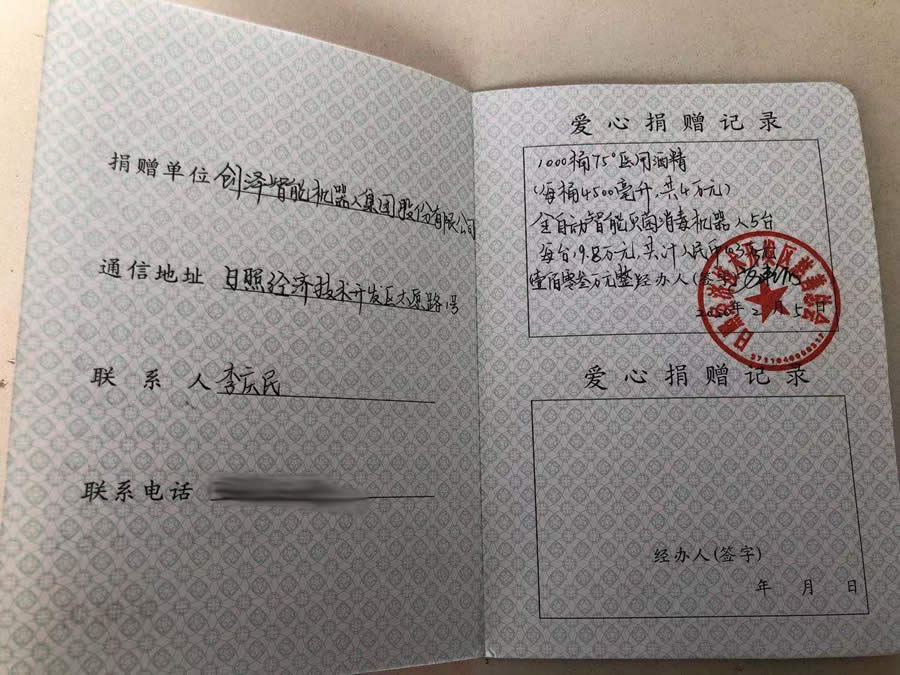 捐赠单位 创泽智能机器人集团股份有限公司
通信地址 日照经济技术开发区太原路号
联 系 人 李庆民
联系电话
爱心捐赠记录
1000桶75°医用酒精
(每桶4500毫升,共4万元)
全自动智能灭菌消毒机器人5台
每台19.8万元,共计人民币103万元
壹佰零叁万元整 经办人(签字)
2020年2月5日
爱心捐赠记录
经办人(签字)
年 月 日